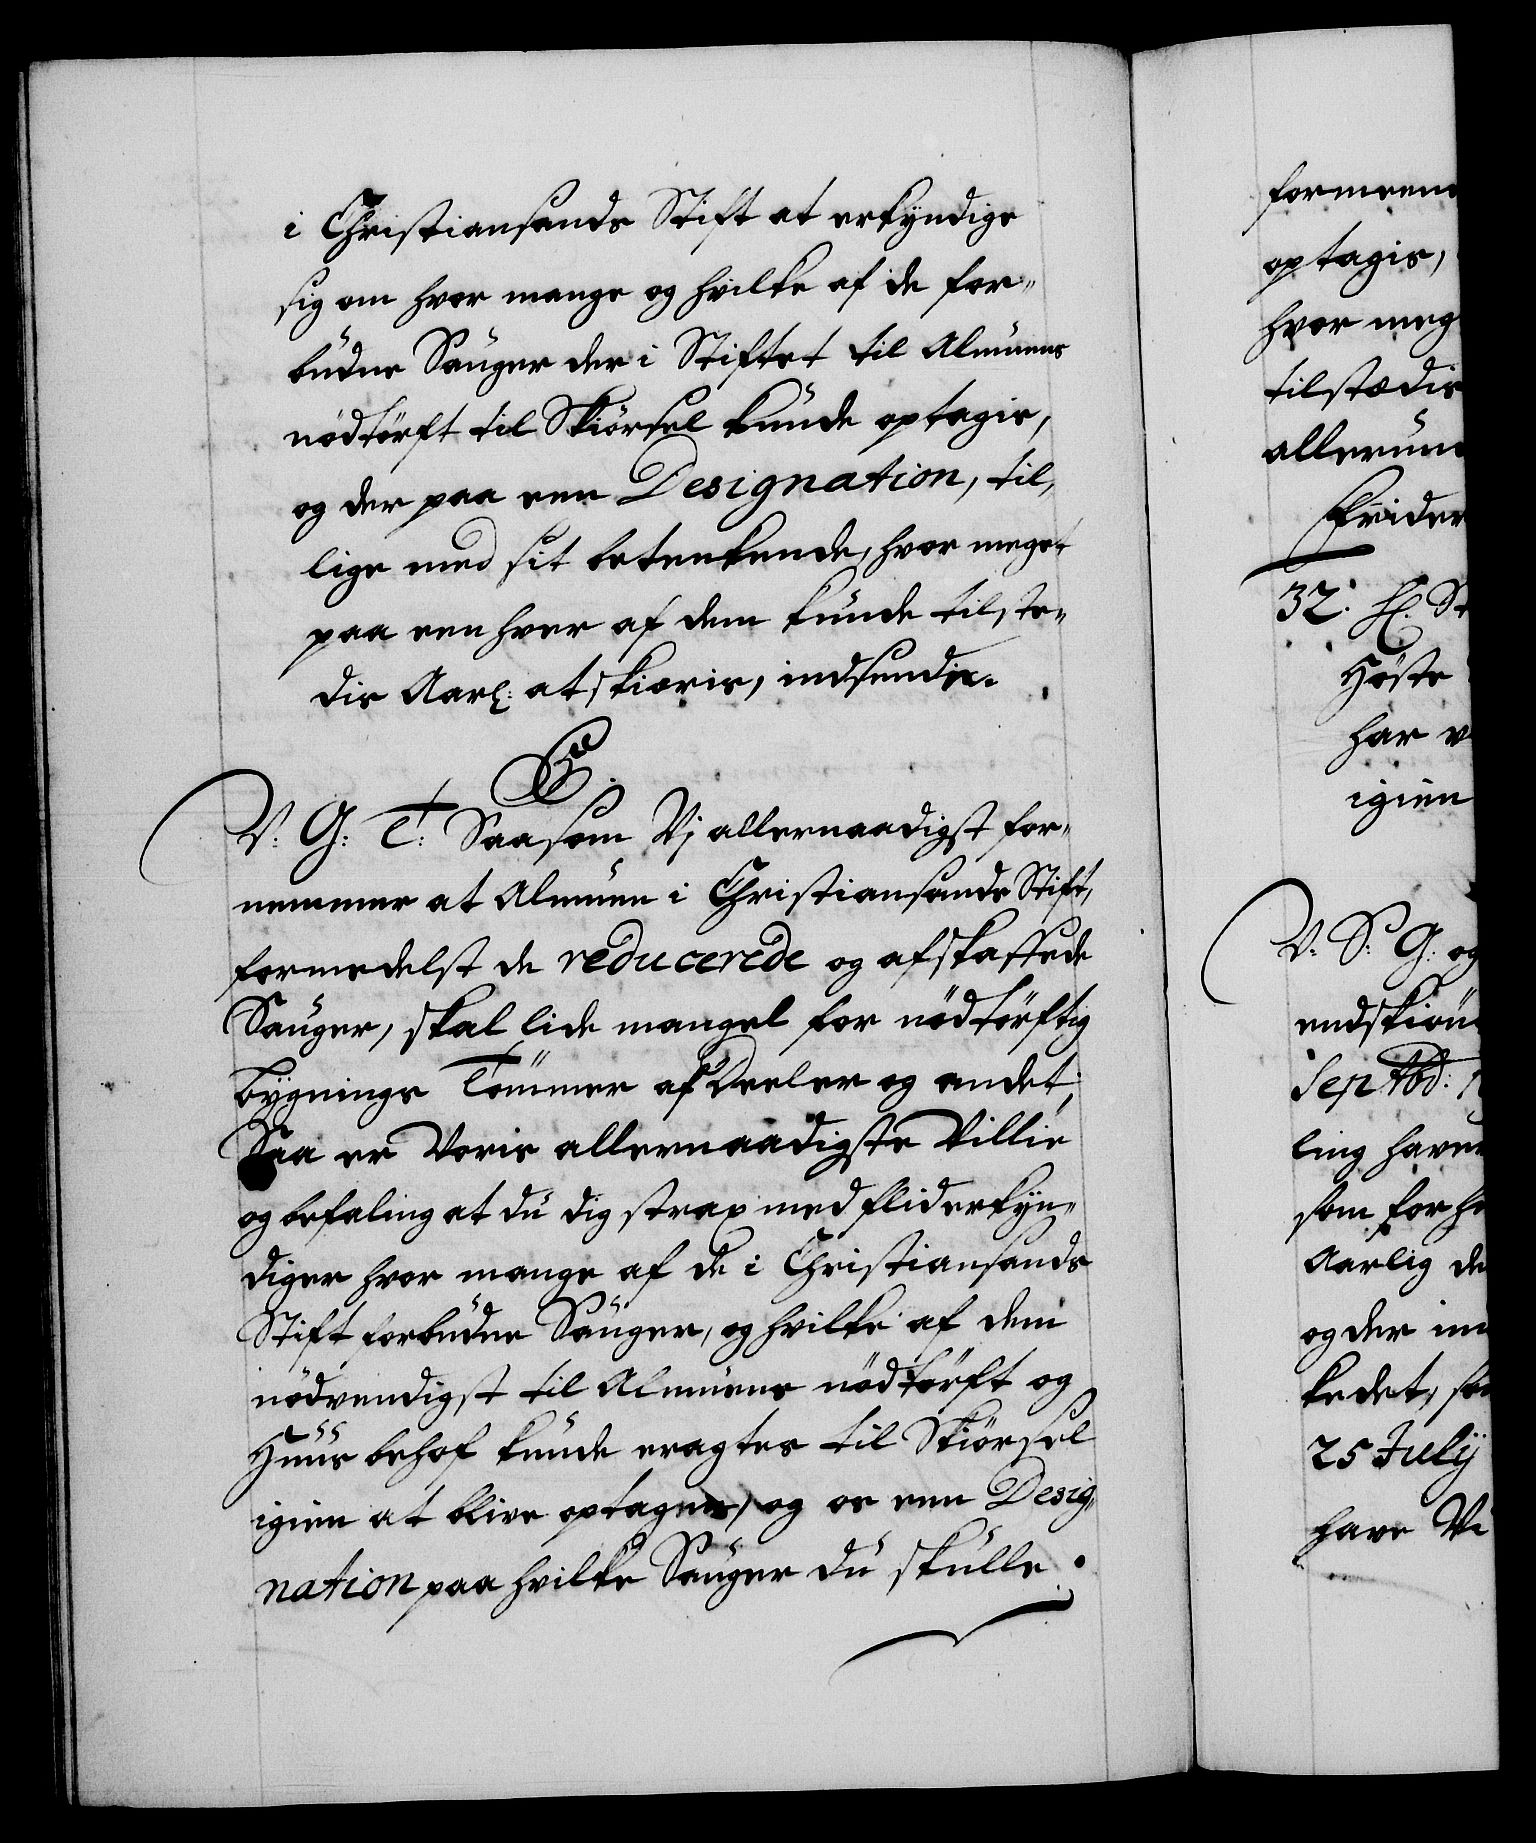 i Christiansands Stift at erkyndige
sig om hvor mange og hvilke af de for-
budne Sauger der i Stiftet til Almuens
nödtörft til Skiörsel kunde optagis,
og der paa een Designation, til,
lige med sit betenkende, hvor meget
paa een hver af dem kunde tilste-
dis Aarl: at skiæris, indsendis.
V: G: T: Saasom Vj allernaadigst for-
nemmer at Almuen i Christiansands Stift,
formedelst de reducerede og afskaffede
Sauger, skal lide mangel for nödtörftig
bygnings Tömmer af Deeler og andet,
Saa er Voris allernaadigste Villie
og befaling at du dig strax med flid erkyn-
diger hvor mange af de i Christiansands
Stift forbudne Sauger, og hvilke af dem
nödvendigst til Almuens nödtörft og
Huus behof kunde eragtes til Skiörsel
igien at blive optagne, og os een Desig-
nation paa hvilke Sauger du skulle
formeene
optagis,
hvor meg
tilstædis
allerun
Frider
32. H. St
Höste
har v
igien
V. S: G: og
endskiön
Septbd:
ling have
som for h
Aarlig de
og der im
ke det, so
25 Julij
have Vi